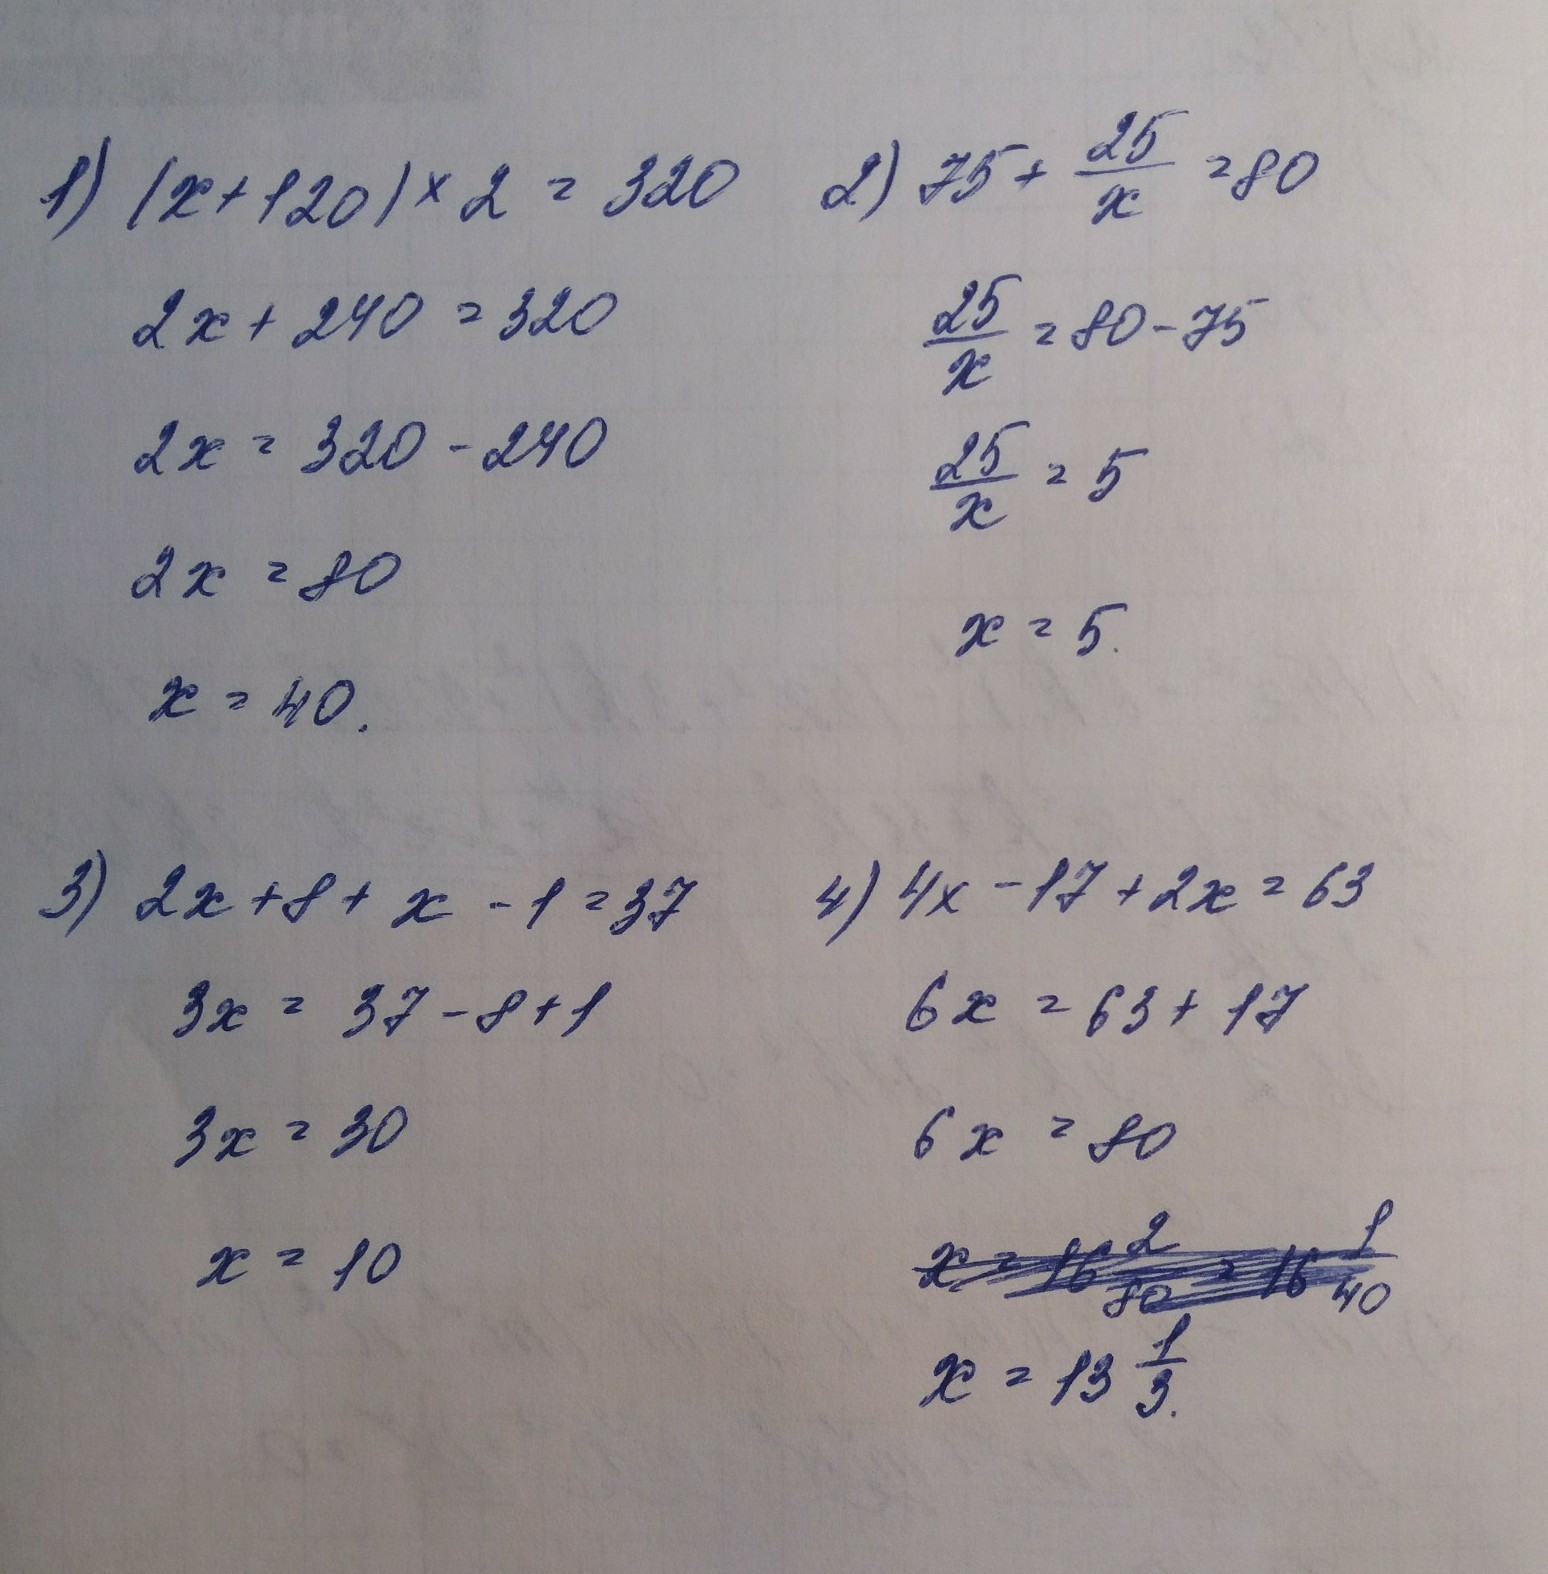 1) (x+120)×2=320
2x+240=320
2x=320-240
2x=80
x=40.
2) 75+25/x=80
25/x=80-75
25/x=5
x=5.
3) 2x+8+x-1=37
3x=37-8+1
3x=30
x=10
4) 4x-17+2x=63
6x=63+17
6x=80
x=16 2/80=16 1/40
x=13 1/3.